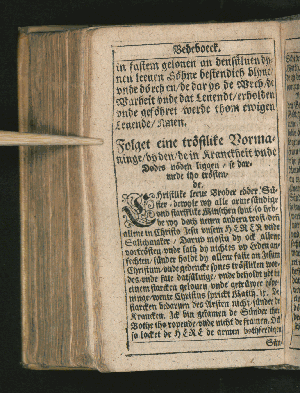 Bedeboeck.
in fastem gelouen an densüluen dy-
nen leeuen Söhne bestendich blyue/
vnde dörch en/ de dar ys de Wech/ de
Warheit vnde dat Leuendt/ erholden
vnde geföhret werde thom ewigen
Leuende/ Amen.
Folget eine tröstlike Vorma-
ninge/ by den/ de in Kranckheit vnde
Dodes nöden liggen/ se dar-
mede tho trösten.
CHristlike leeue Broder edder Sü-
ster/ dewyle wy alle arme sündige
vnd sterfflike Minschen synt/ so heb-
be wy doch nenen andern trost/ den
allene in Christo Jesu vnsem HEREN vnde
Salichmaker/ Darum möstu dy ock allene
vortrösten/ vnde lath dy nichtes vp Erden an-
fechten/ sünder holdt dy allene faste an Jesum
Christum/ vnde gedencke synes tröstliken wor-
des/ vnde fate datsüluige/ vnde beholdt ydt in
einem starcken gelouen vnde
wente Christus sprickt Matth.
starcken bedöruen des Arsten nicht/ sünder de
Krancken. Ick bin gekamen de Sünder thor
Bothe tho ropende/ vnde nicht de framen. Al-
so locket de HERE de armen bothferdigen
Sün-